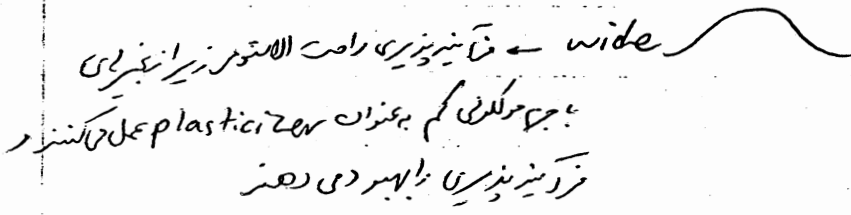 wide ← فرآیندپذیری راحت الاستومر زیرا زنجیرهای
با جرم مولکولی کم به عنوان plasticizer عمل می‌کنند و
فرآیندپذیری را بهبود می دهند